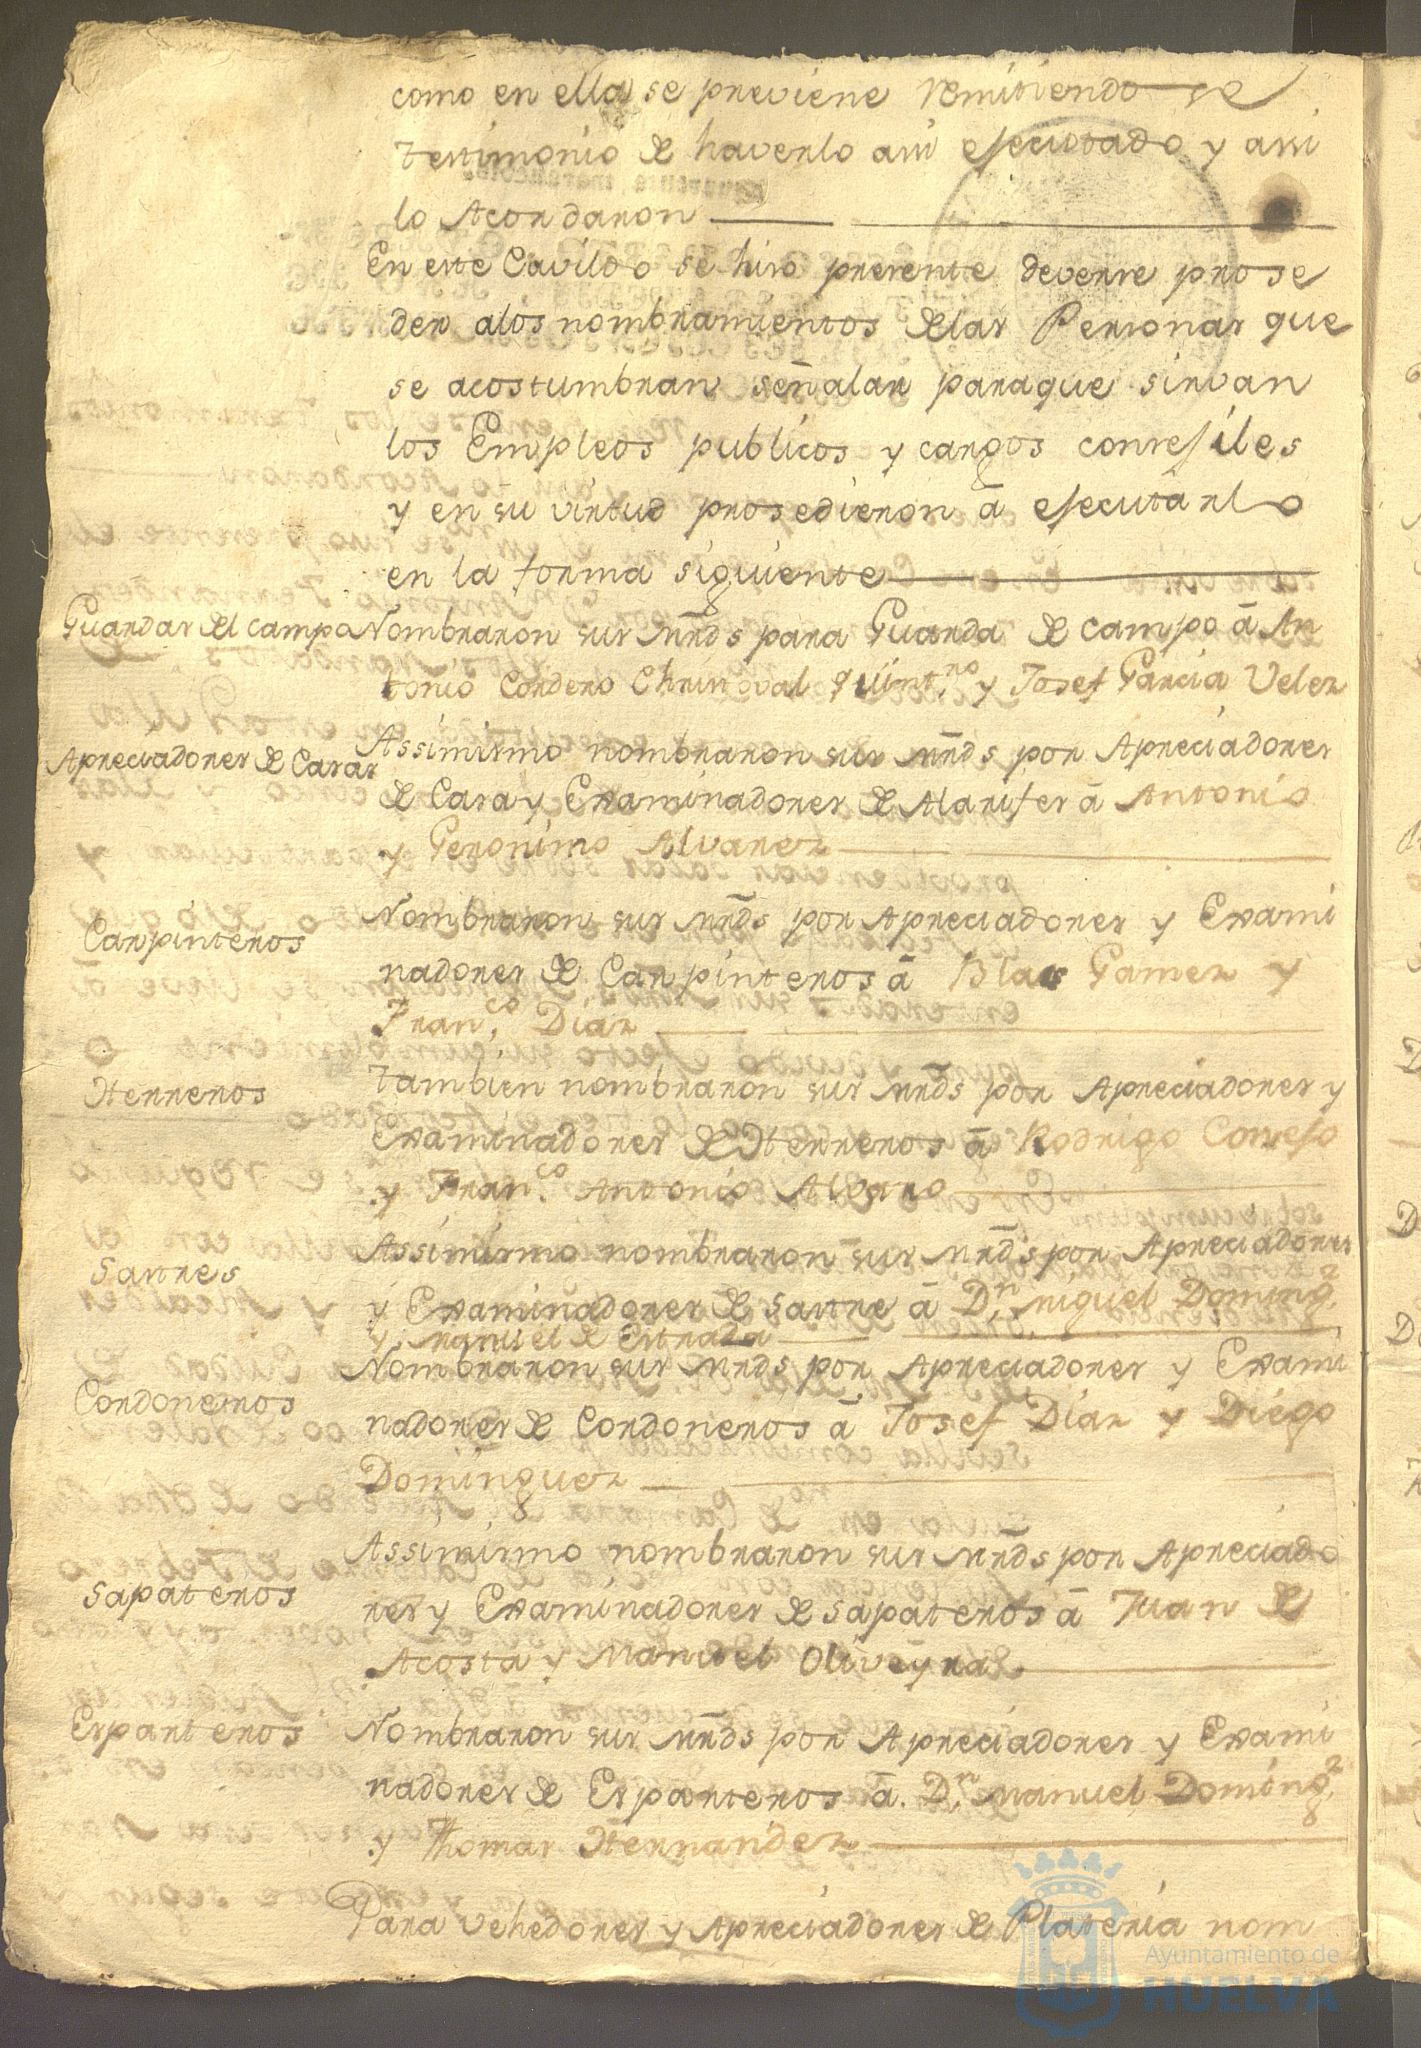 como en ella se previene remitiendose
testimonio de haverlo assi efecutado y assi
lo Acordaron
En este Cavildo se hiso presente deverse prose
der a los nombramientos de las Personas que
se acostumbran señalar para que sirvan
los Empleos publicos y cargos consejiles
y en su virtud prosedieron â efecutarlo
en la forma siguiente
Guardas del campo
Nombraron sus mrds para Guarda de campo â An
tonio Cordero Christoval quint.ro y Josef Garcia Velez
Apreciadores de Casas
Assimismo nombraron sus mrds por Apreciadores
de Casa y Examinadores de Alarifes â Antonio
y Geronimo Alvarez
Carpinteros
Nombraron sus mrds por Apreciadores y Exami
nadores de Carpinteros â Blas Gamez y
Fran.co Diaz
Herreros
Tambien nombraron sus mrds por Apreciadores y
Examinadores de Herreros â Rodrigo Consejo
y Fran.co Antonio Alvaro
Sastres
Assimismo nombraron sus mrds por Apreciadores
y Examinadores de Sastre â D.n Miguel Doming.z
y Manuel de Estrada
Cordoneros
Nombraron sus mrds por Apreciadores y Exami
nadores de Cordoneros â Josef Diaz y Diego
Dominguez
Sapateros
Assimismo nombraron sus mrds por Apreciado
res y Examinadores de Sapateros â Juan de
Acosta y Manuel Oliveyra
Esparteros
Nombraron sus mrds por Apreciadores y Exami
nadores de Esparteros â D.n Manuel Doming.z
y Thomas Hernandez
Para vehedores y Apreciadores de Plateria nom
Ayuntamiento de
HUELVA